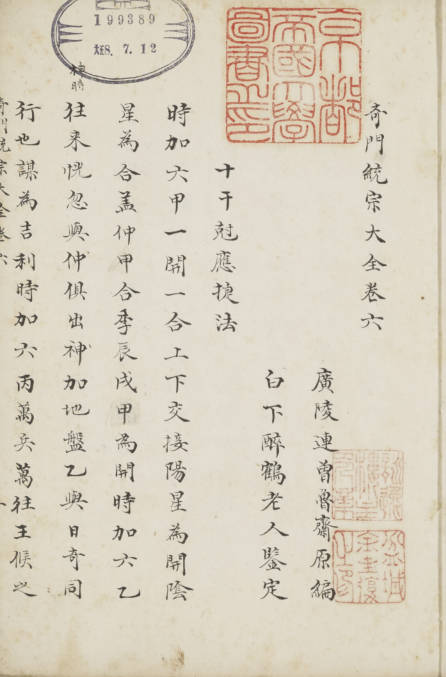 奇門統宗大全卷六
廣陵連曾魯齋原編
白下醉鶴老人鑒定
十干尅應捷法
時加六甲一開一合上下交接陽星為開陰
星為合盖仲甲合季辰戌甲為開時加六乙
往来恍忽與仲俱出神加地盤乙與日奇同
行也謀為吉利時加六丙萬兵萬往王候之
奇門統宗大全卷六
京都帝國大學圖書之印
199389
大正8. 7. 12